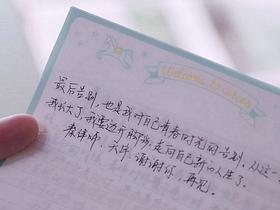 Welcome to
最后告别，也是我对自己青春时光的告别，从这一
我长大了，我要迈开脚步，走向自己新的人生了。
秦律师，天华，谢谢你，再见。